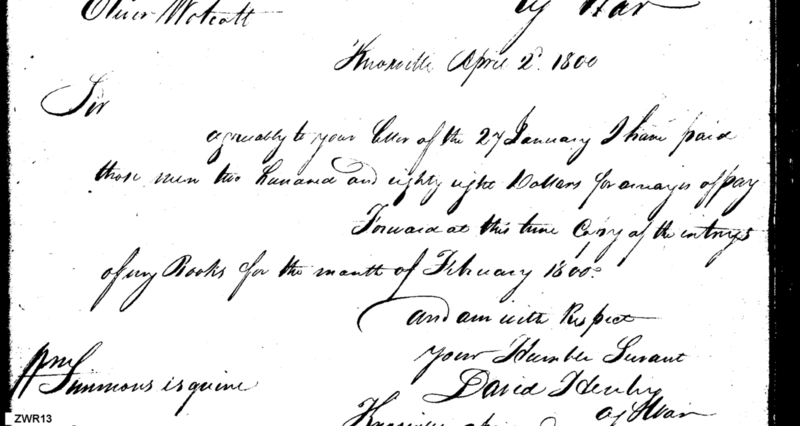 Oliver Wolcott
ag War
Knoxville April 2d. 1800
Sir
agreeably to your letter of the 27 January I have paid
those men two hundred and eighty eight Dollars for arrayes of pay
Forward at this time Copy of the entrys
of my Books for the month of February 1800
and am with Respect
your Humber Servant
Wm
Simmons esquire
David Henley
ag War
ZWR13